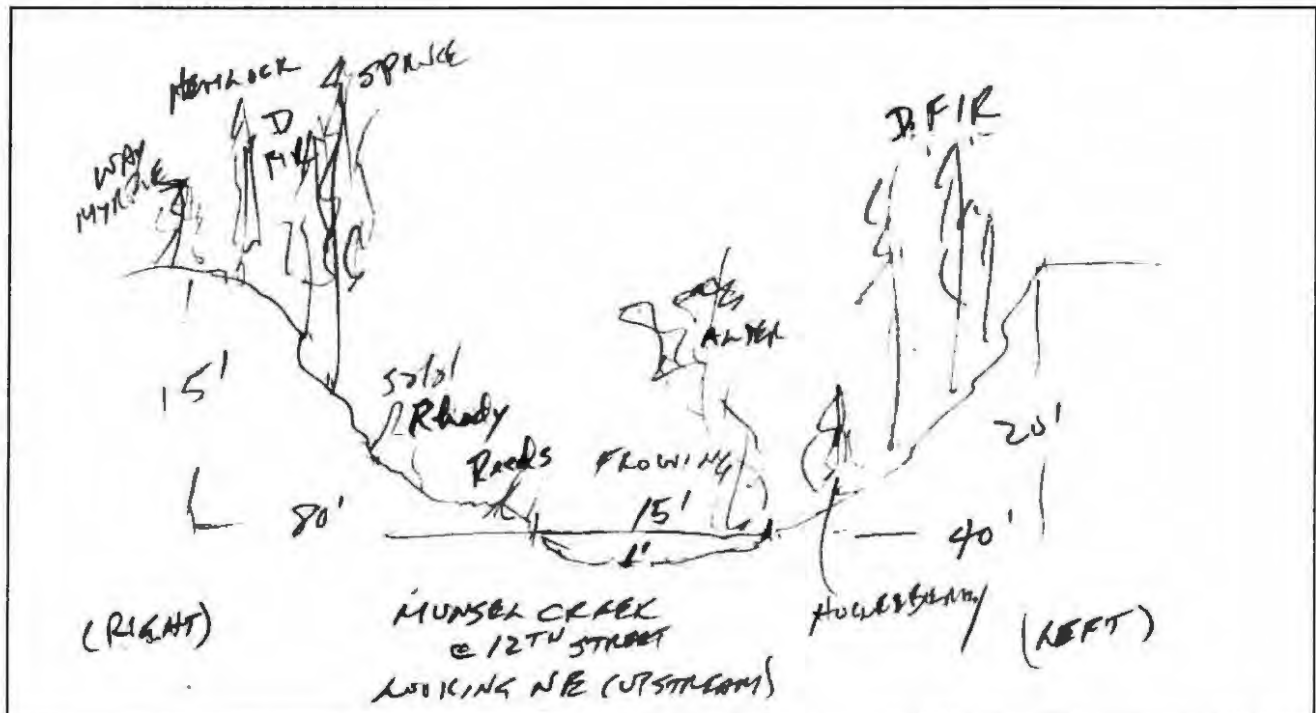 HEMLOCK
SPRUCE
D. FIR
WAX
MYRTLE
D
15'
ALDER
Salal
Rhody
Reeds
FLOWING
20'
80'
15'
40'
1'
HUCKLEBERRY
(RIGHT)
MUNSEL CREEK
@ 12TH STREET
LOOKING NE (UPSTREAM)
(LEFT)